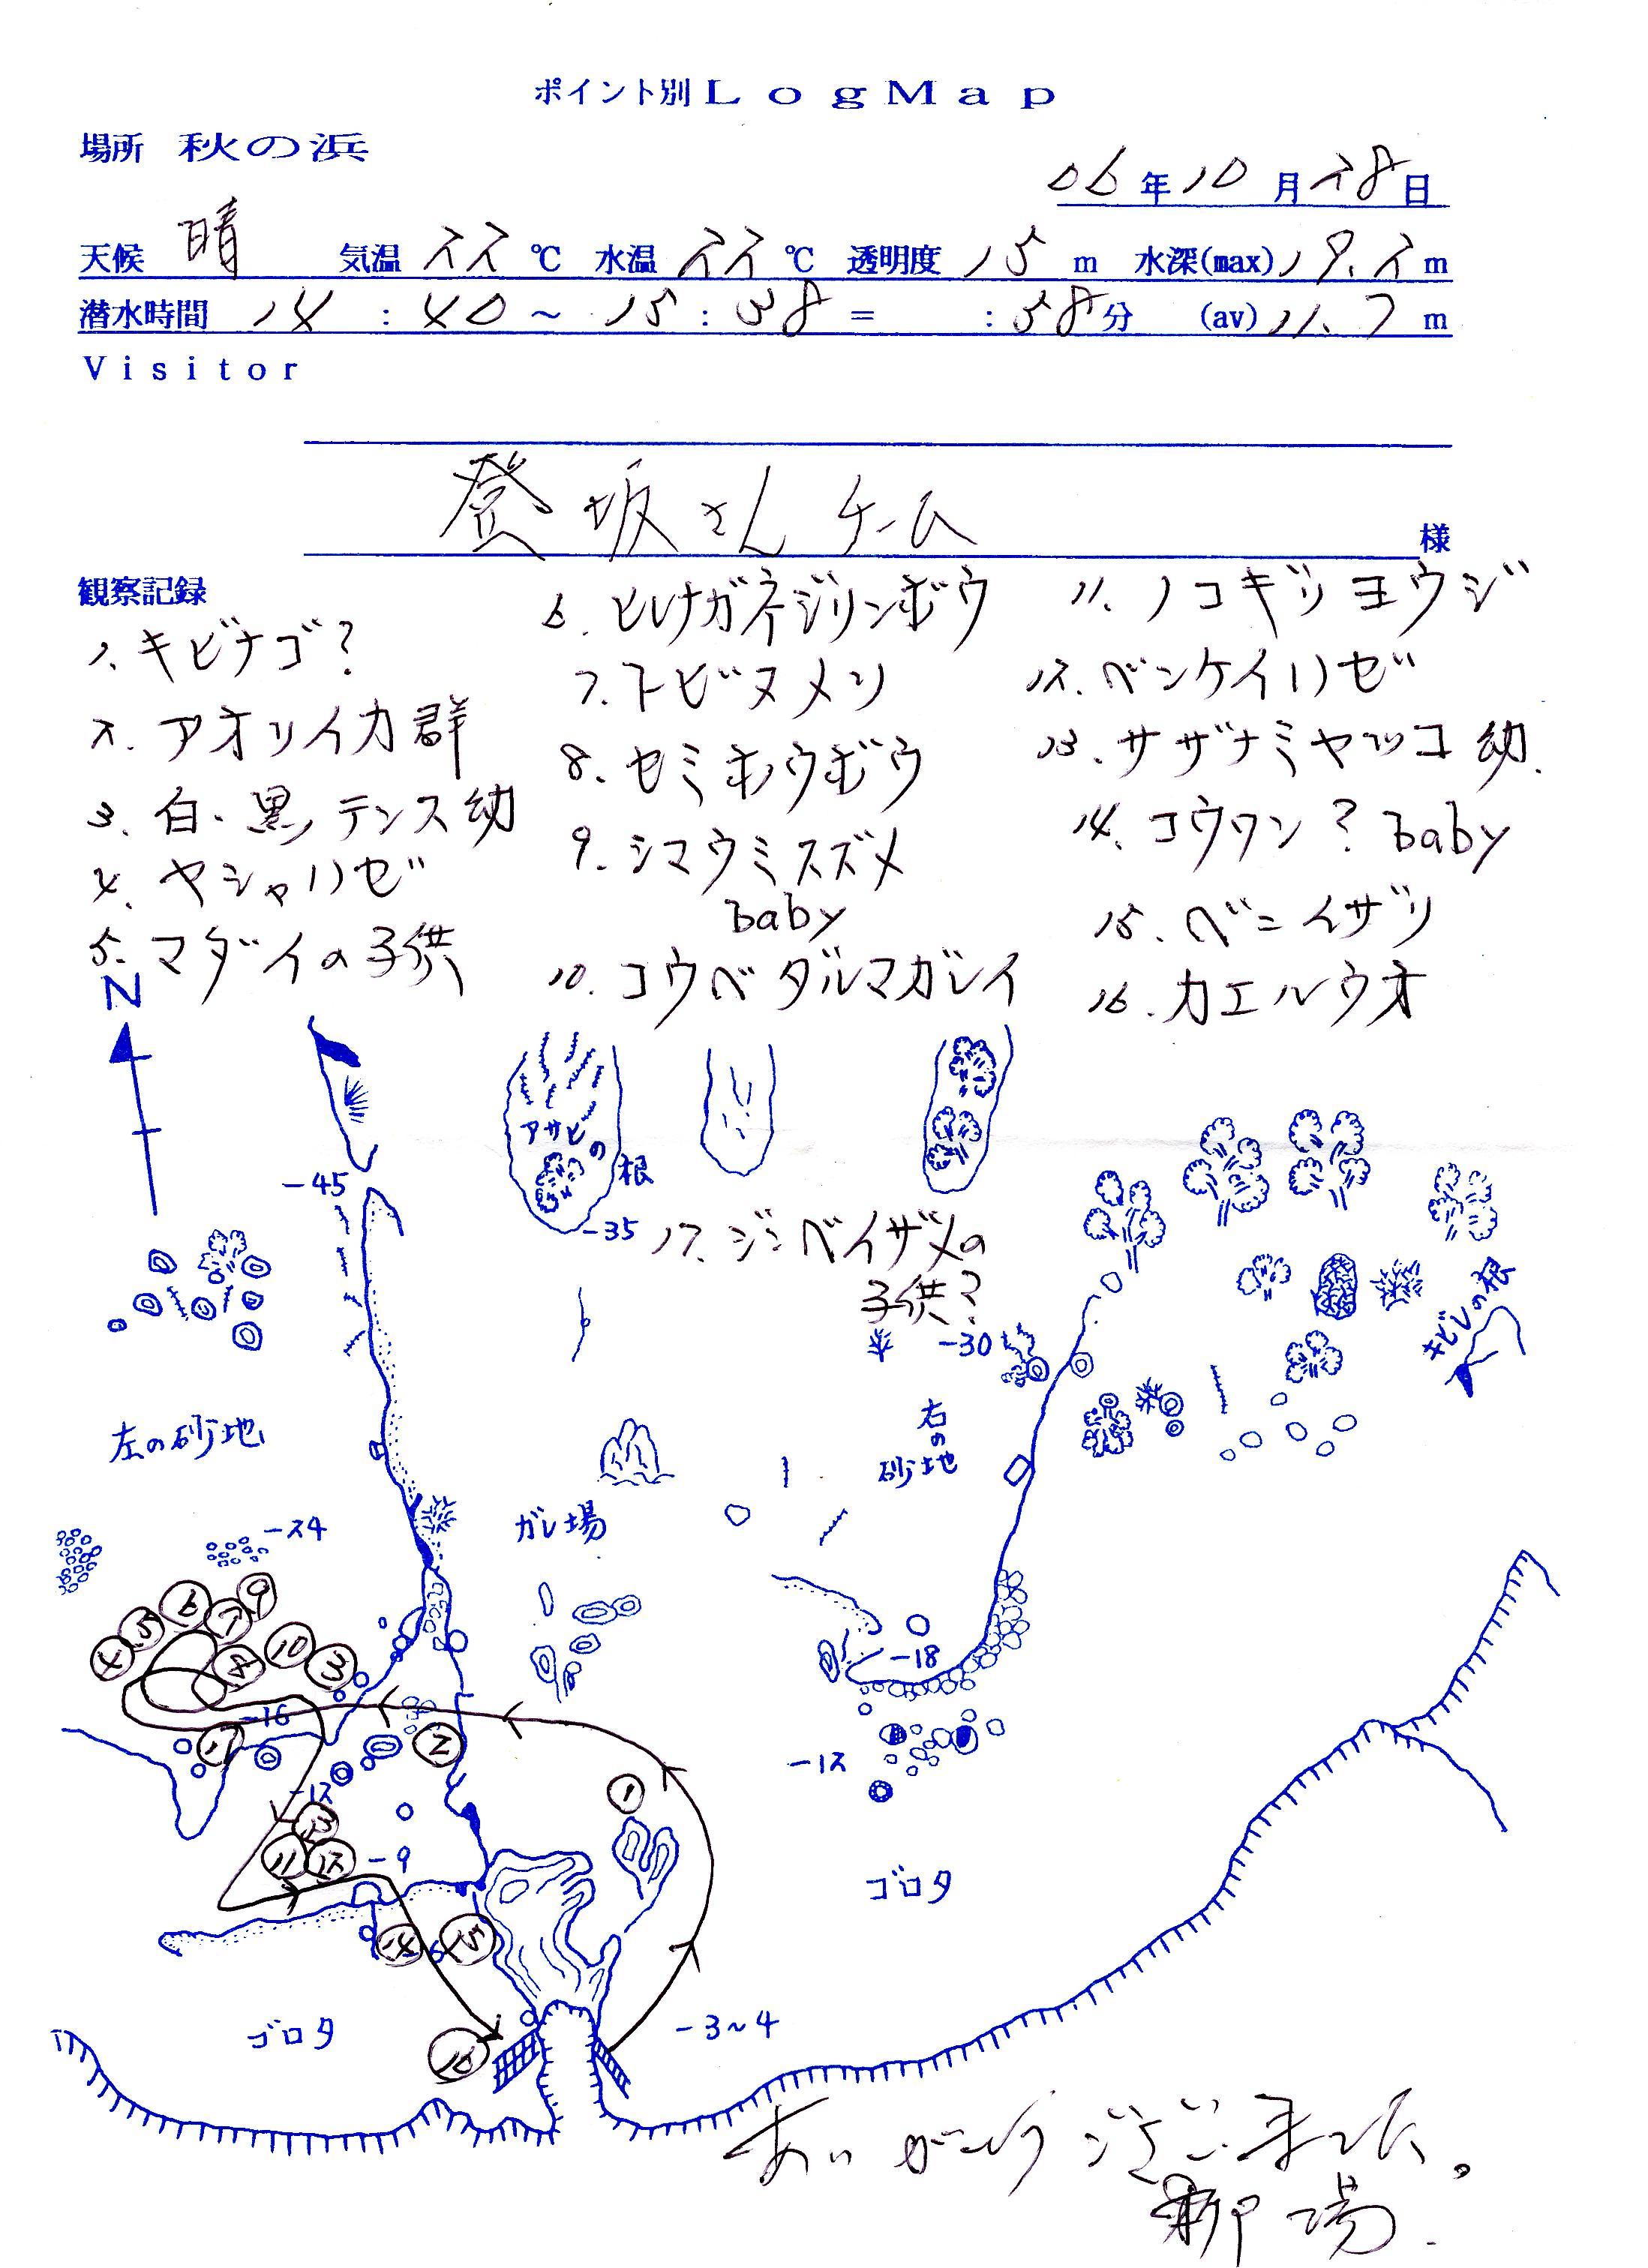 ポイント別LogMap
場所 秋の浜
06年10月28日
天候 晴 気温 22℃ 水温 22℃ 透明度 15m 水深(max)19.2m
潜水時間 14:40~15:38= :58分 (av)11.7m
Visitor
登坂さんチーム 様
観察記録
1.キビナゴ?
2.アオリイカ群
3.白・黒テンス幼
4.ヤシャハゼ
5.マダイの子供
6.ヒレナガネジリンボウ
7.トビヌメリ
8.セミホウボウ
9.シマウミスズメ
baby
10.コウベダルマガレイ
11.ノコギリヨウジ
12.ベンケイハゼ
13.サザナミヤッコ幼.
14.コウワン?baby
15.ベニイザリ
16.カエルウオ
N
アサヒの根
-45
-35
17.ジンベイザメの
子供?
-30
キビレの根
左の砂地
右の砂地
ガレ場
-24
4 5 6 7 9
8 10 3
-18
-16
17
2
-12
-12
1
13
11 12 -9
ゴロタ
14 -6 15
ゴロタ
-3~4
16
ありがとうございました。
柳場.